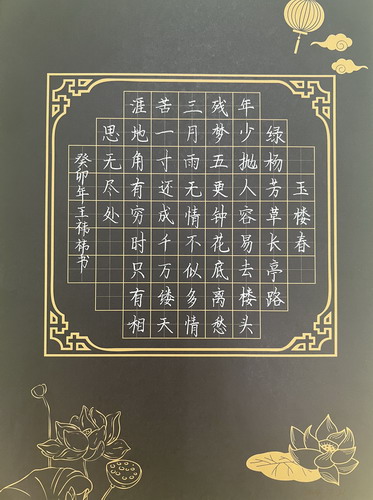 玉楼春
绿杨芳草长亭路
年少抛人容易去楼头
残梦五更钟花底离愁
三月雨无情不似多情
苦一寸还成千万缕天
涯地角有穷时只有相
思无尽处
癸卯年王祎祎书